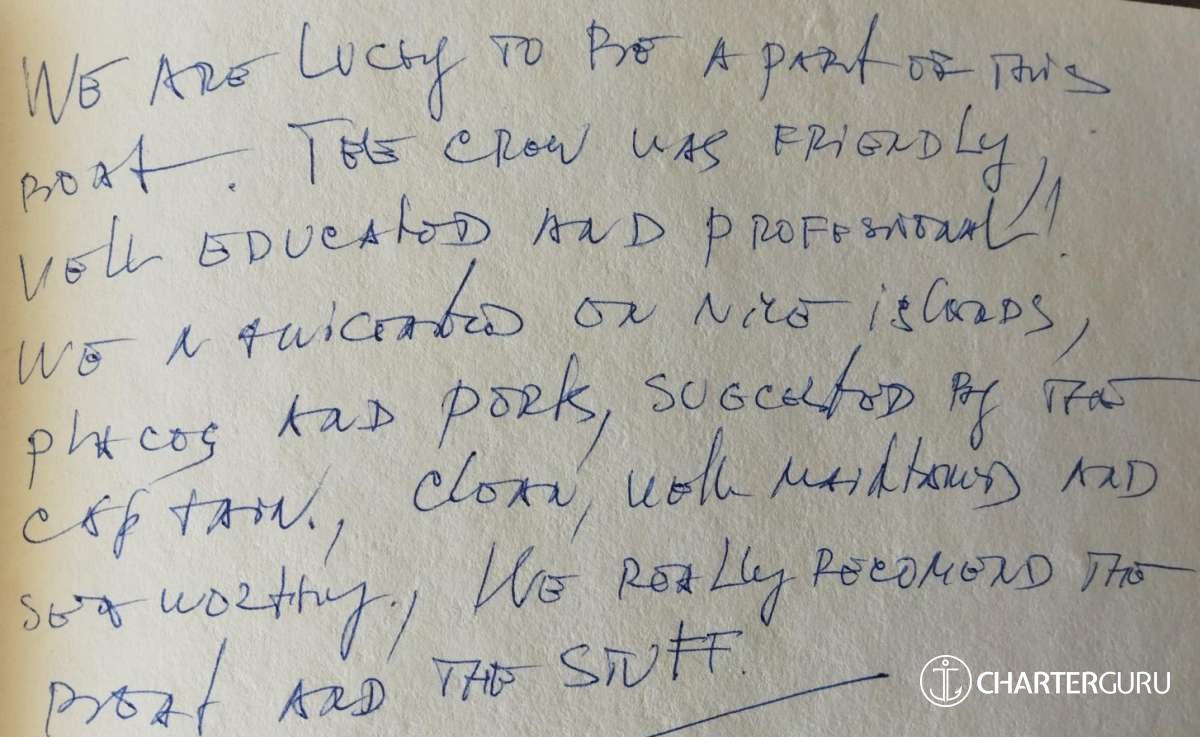 WE ARE LUCKY TO BE A PART OF THIS
BOAT. THE CREW WAS FRIENDLY,
WELL EDUCATED AND PROFESSIONAL!
WE NAVIGATED ON NICE ISLANDS,
PLACES AND PORTS, SUGGESTED BY THE
CAPTAIN., CLEAN, WELL MAINTAINED AND
SEAWORTHY., WE REALLY RECOMEND THE
BOAT AND THE STUFF.
CHARTERGURU